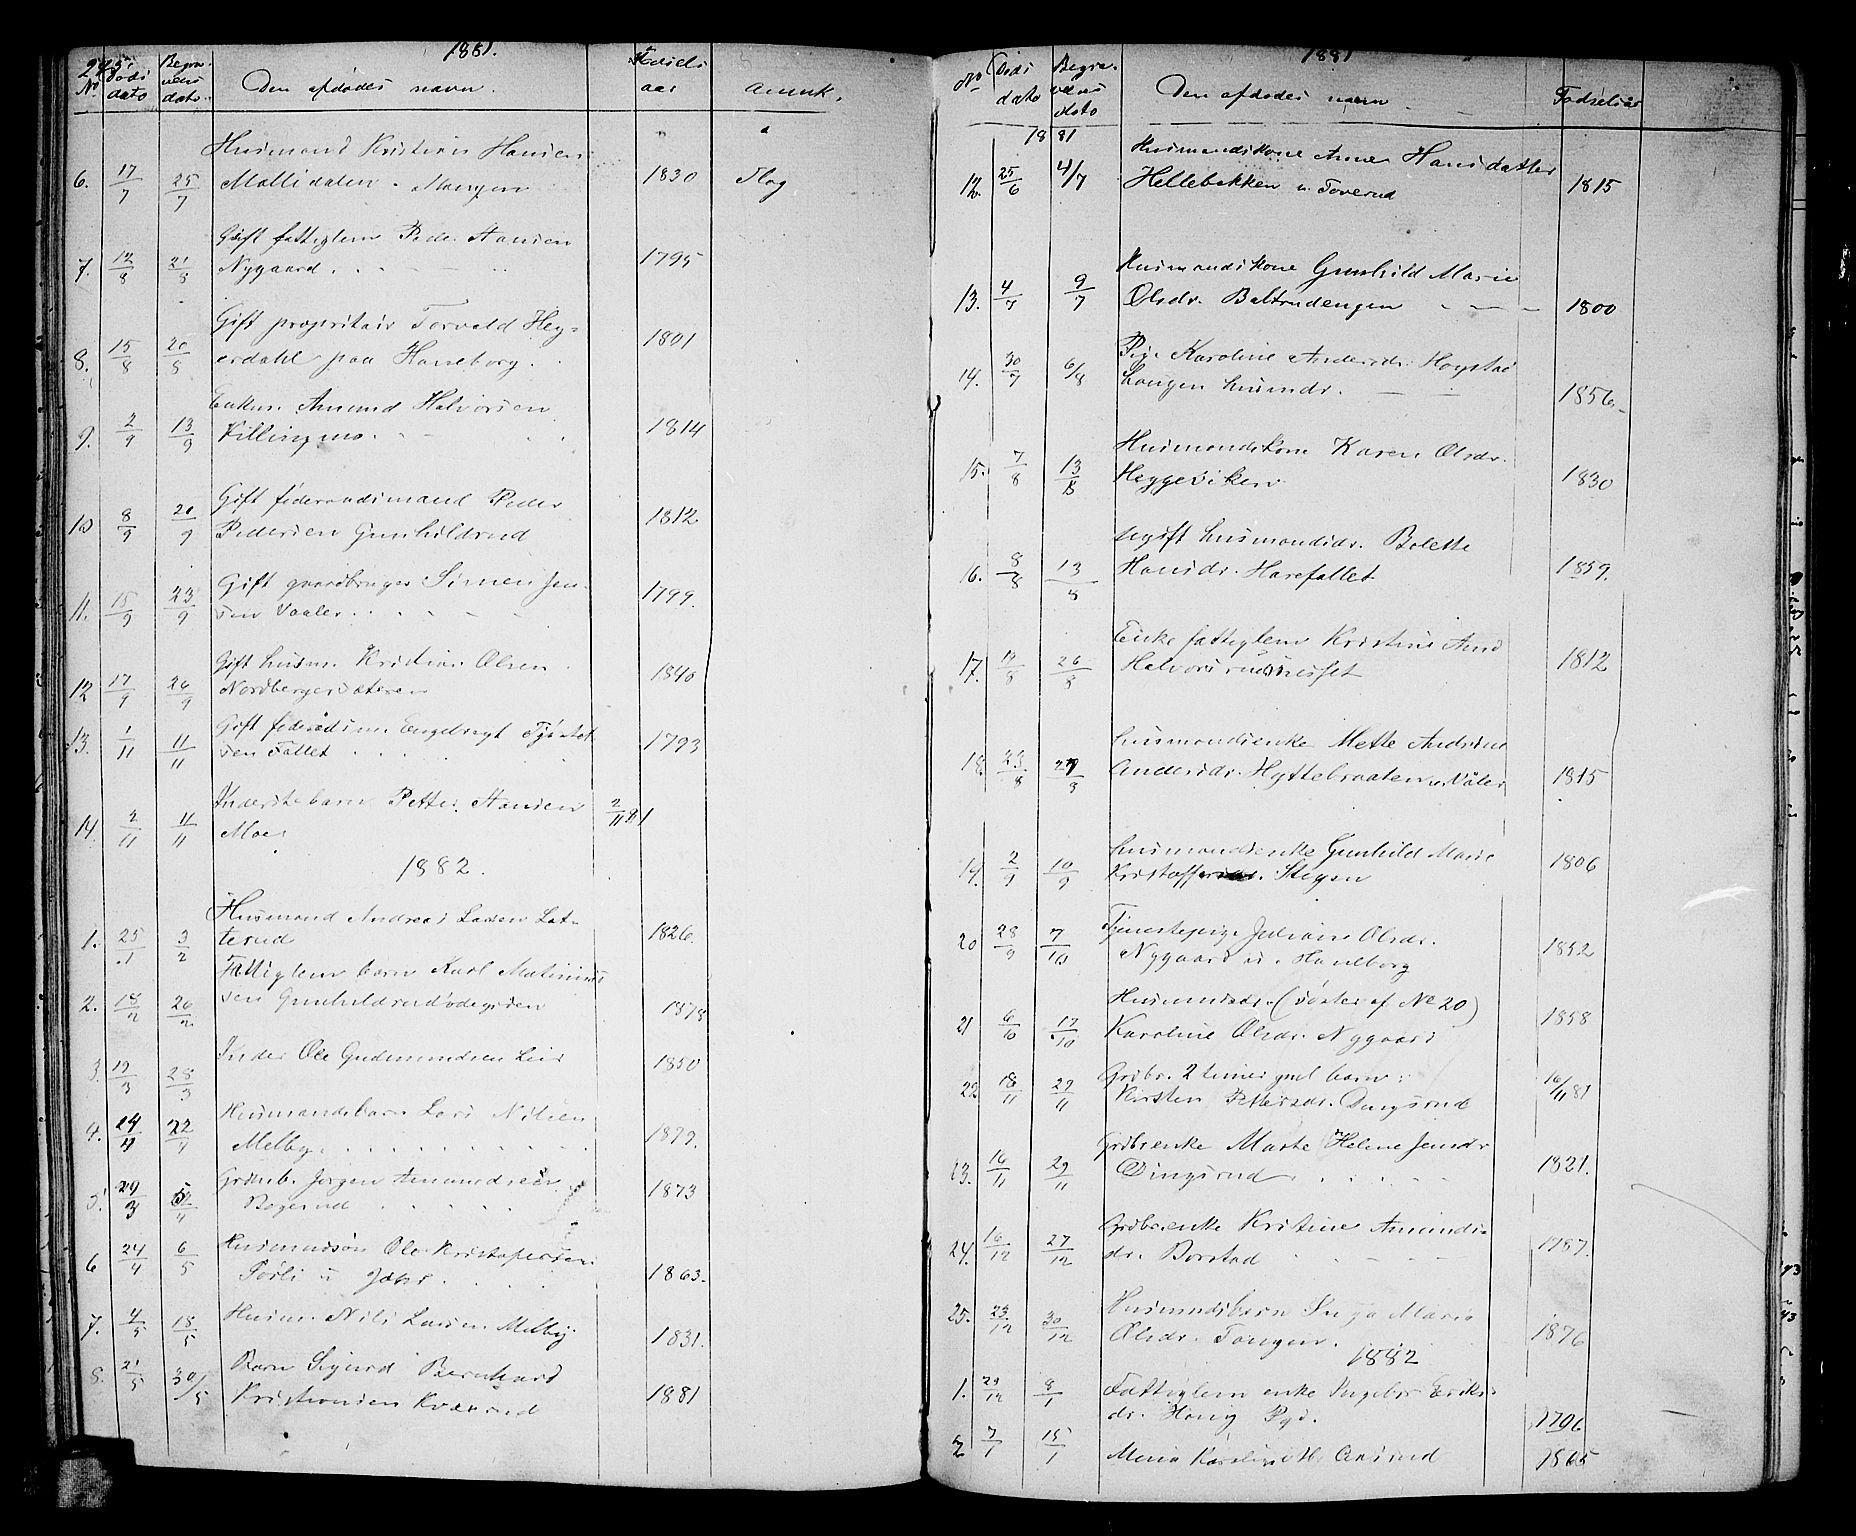 245.
1881.
No Døds dato Begravelses dato Den afdødes navn. Fødsels aar Anmk.
6. 17/7 25/7 Husmand Kristian Hansen
Mollidalen 1830 Slag
7. 12/8 21/8 Gift fattiglem Peder Hansen
Nygaard 1795
8. 15/8 20/8 Gift proprietair Torvald Hey=
erdahl paa Haneborg. 1801
9. 2/9 13/9 Amund Halvorsen
Killingmo. 1814
10 8/9 20/9 Gift føderaadsmand Peder
Pedersen Gunhildrud 1812
11. 15/9 23/9 Gift gaardbruger Simen Jen-
sen Vaaler 1799.
12 17/9 26/9 Gift husm. Kristian Olsen
Nordbergersæteren 1840
13. 1/11 11/11 Gift føderaadsm. Engebregt
sen Fallet 1793
14. 2/11 11/11 Inderstebarn Petter Hansen
Moe 2/11 81
1882.
1. 25/1 3/2 Husmand Andreas Larsen Lat-
terud 1826.
2. 18/2 26/2 Fattiglem barn Karl Matinius
sen Gunhildrudødegården 1878
3. 19/3 28/3 Inder Ole Gudmundsen 1850
4. 14/4 22/4 Husmandsbarn Lars Nilsen
Melby 1879.
5. 29/3 Grdmb. Jørgen Amundsen
Bøgerud 1873
6 24/4 6/5 Husmndsøn Ole Kristofersen
1863.
7. 4/5 18/5 Husm. Nils Larsen Melby 1831.
8. 21/5 30/5 Barn Sigurd Bernhard
Kristiansen Kværud 1881
1881
No Døds dato Begravelses dato Den afdødes navn Fødselsaar
1881
12. 25/6 4/7 Husmandskone Anne Hansdatter
Hellebekken u. Toverud 1815
13. 4/7 9/7 Husmandskone Gunhild Marie
Olsdr. Baltrudengen 1800
14. 30/7 6/8 Pige Karoline Andersdr.
husmdr. 1856
15. 7/8 13/8 Husmandskone Karen Olsdr.
Heggeviken 1830
16. 8/8 13/8 Ugift husmandsdr. Bolette
Hansdr. Harefallet 1859.
17. 26/8 Enke fattiglem Kristine
Halvorsrudneset 1812
18. 23/8 Husmandsenke Mette Andrine
Andersdr. Hyttebraaten u. Våler 1815
19. 2/9 10/9 husmandsenke Gunhild Marie
Kristoffersdr. Stigen 1806
20 28/9 7/10 Tjenestepige Juliane Olsdr.
Nygaard u. Haneborg 1852
21 6/10 17/10 Husmndsdr. (søster af No 20)
Karoline Olsdr. Nygaard 1858
22 18/11 29/11 Grdbr. 2 timer gml barn:
Kirsten Pettersdr. Dingsrud 16/11 81
23. 16/11 29/11 Grdbrenke Marte Helene Jensdr
Dingsrud 1821.
24. 16/12 27/12 Grdbrenke Kristine Amunds-
dr. Borstad 1787.
25. 23/12 30/12 Husmndsbarn Inga Marie
Olsdr. Tangen. 1876
1882
1. 29/12 8/1 Fattiglem enke Ingebor Eriks-
dr. 1796
2 7/1 15/1 1865